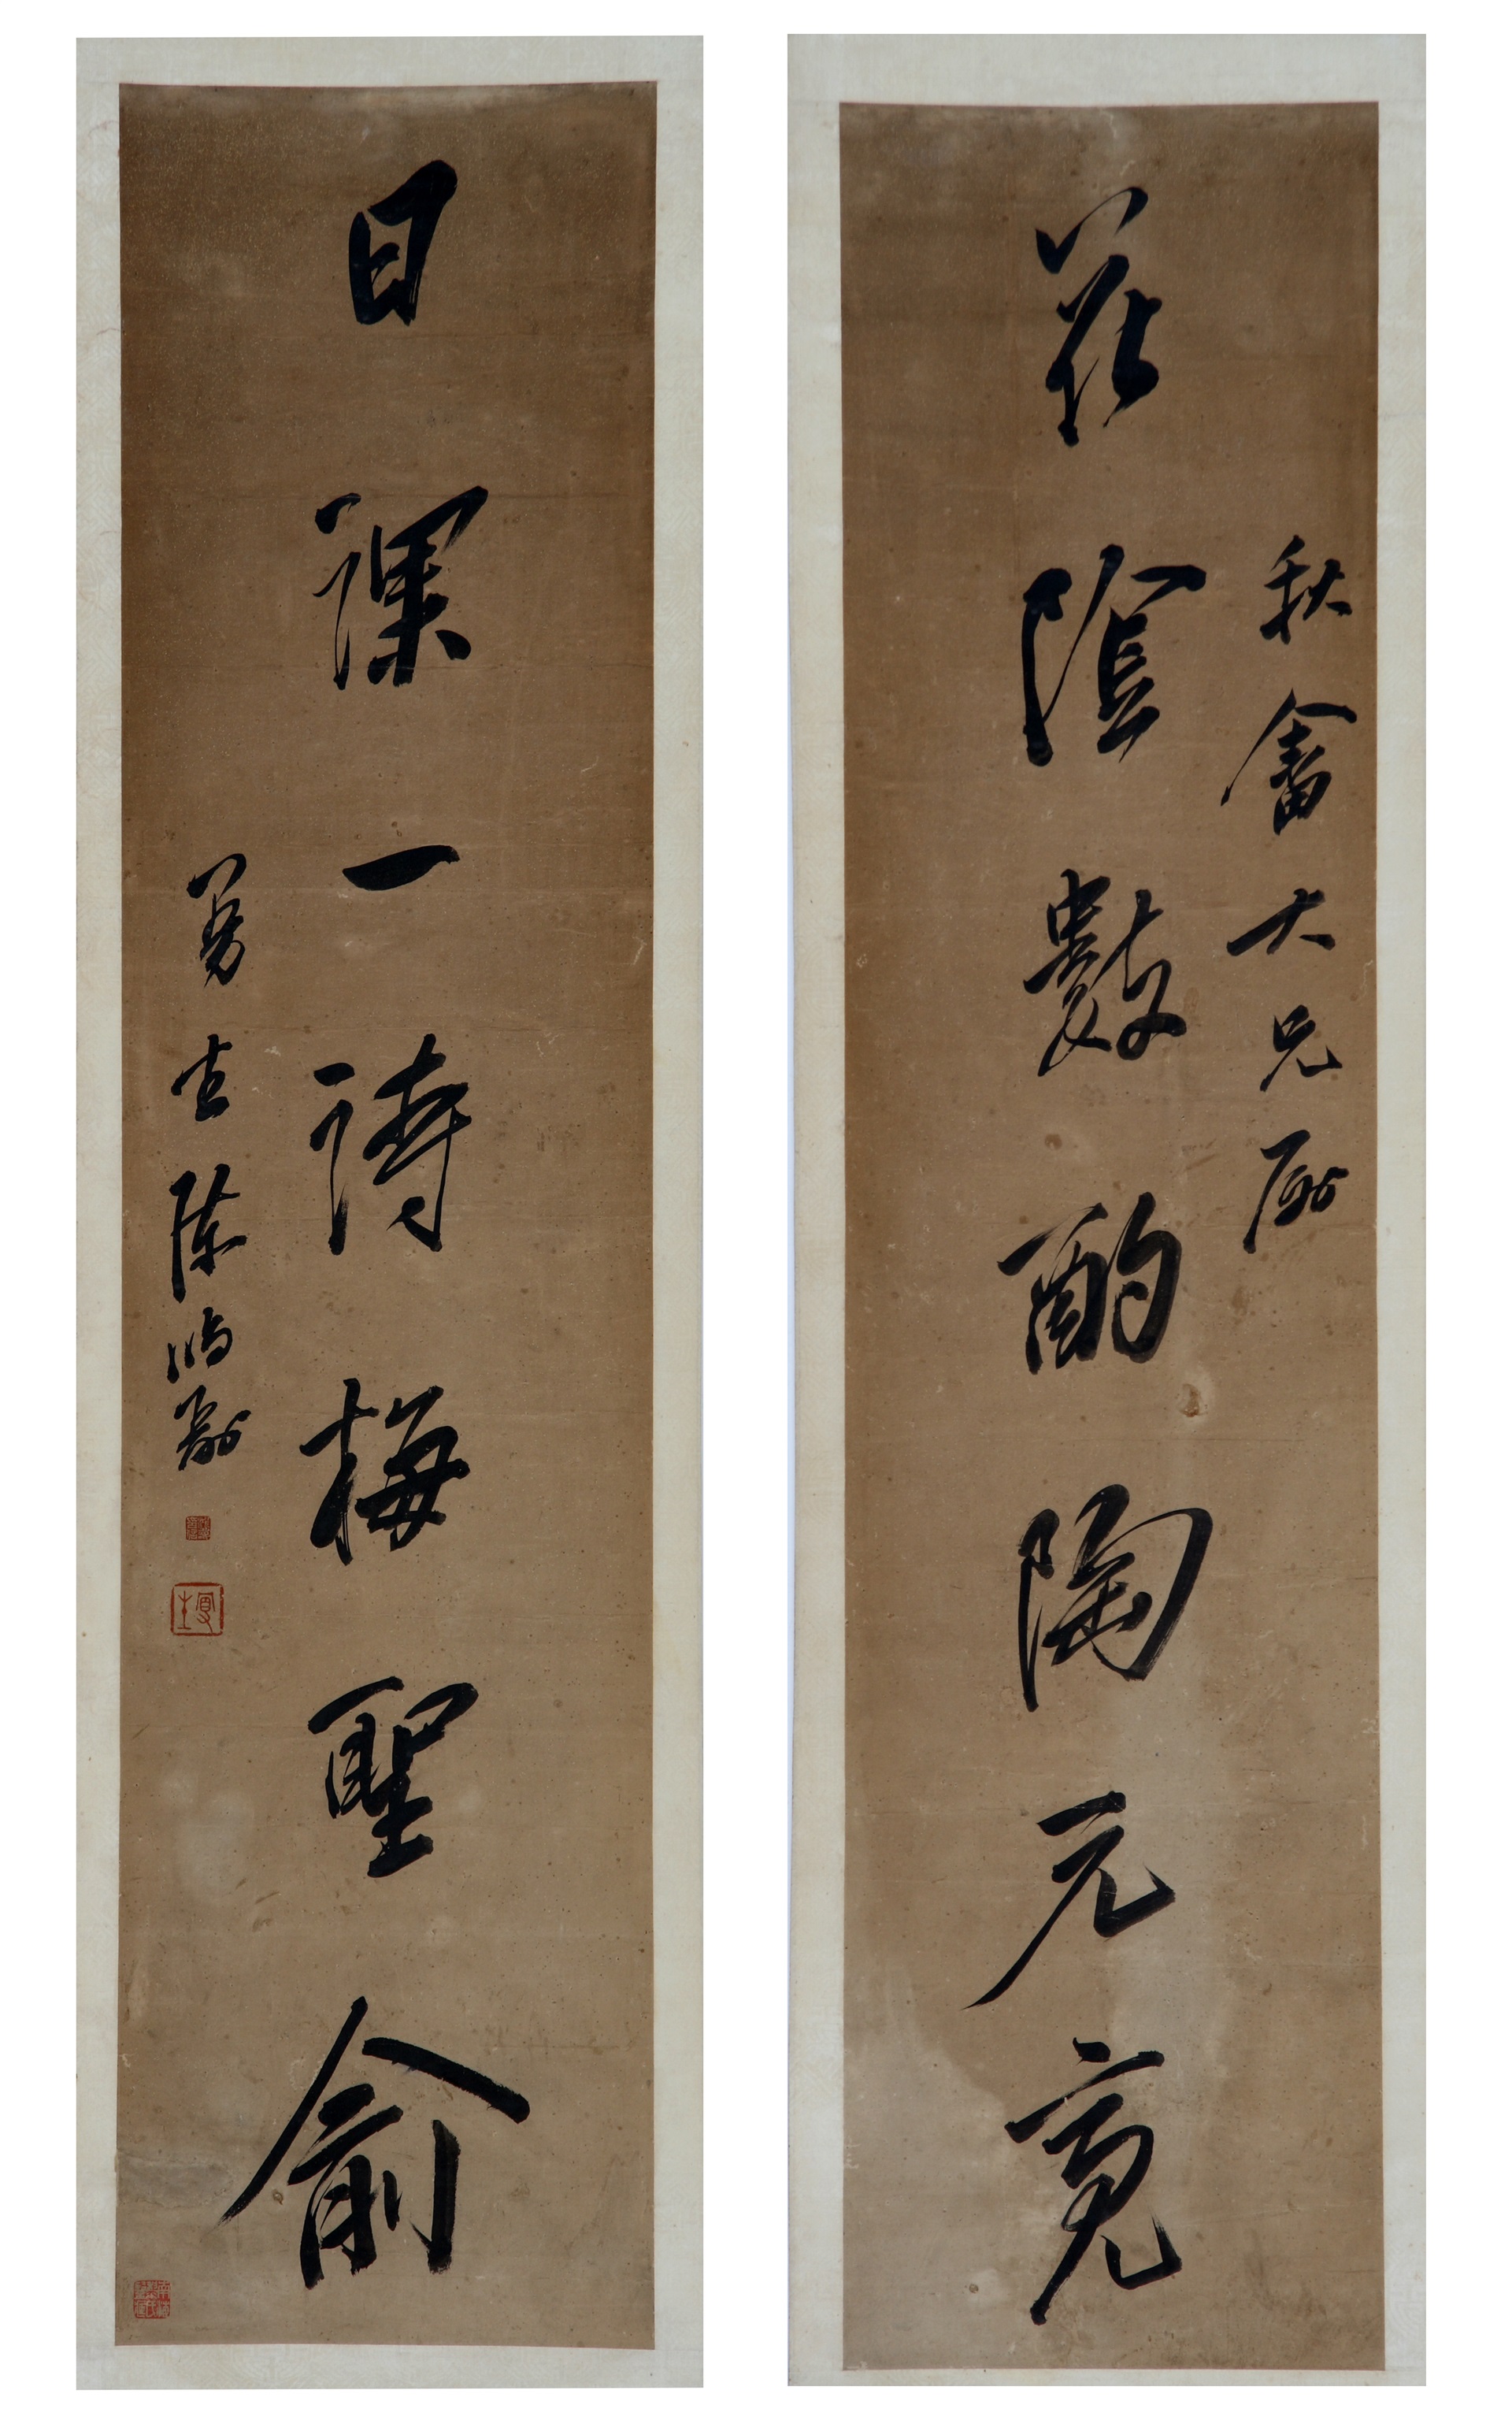 秋畬大兄屬
花陰數酌陶元亮
日課一詩梅聖俞
曼生陳鴻壽